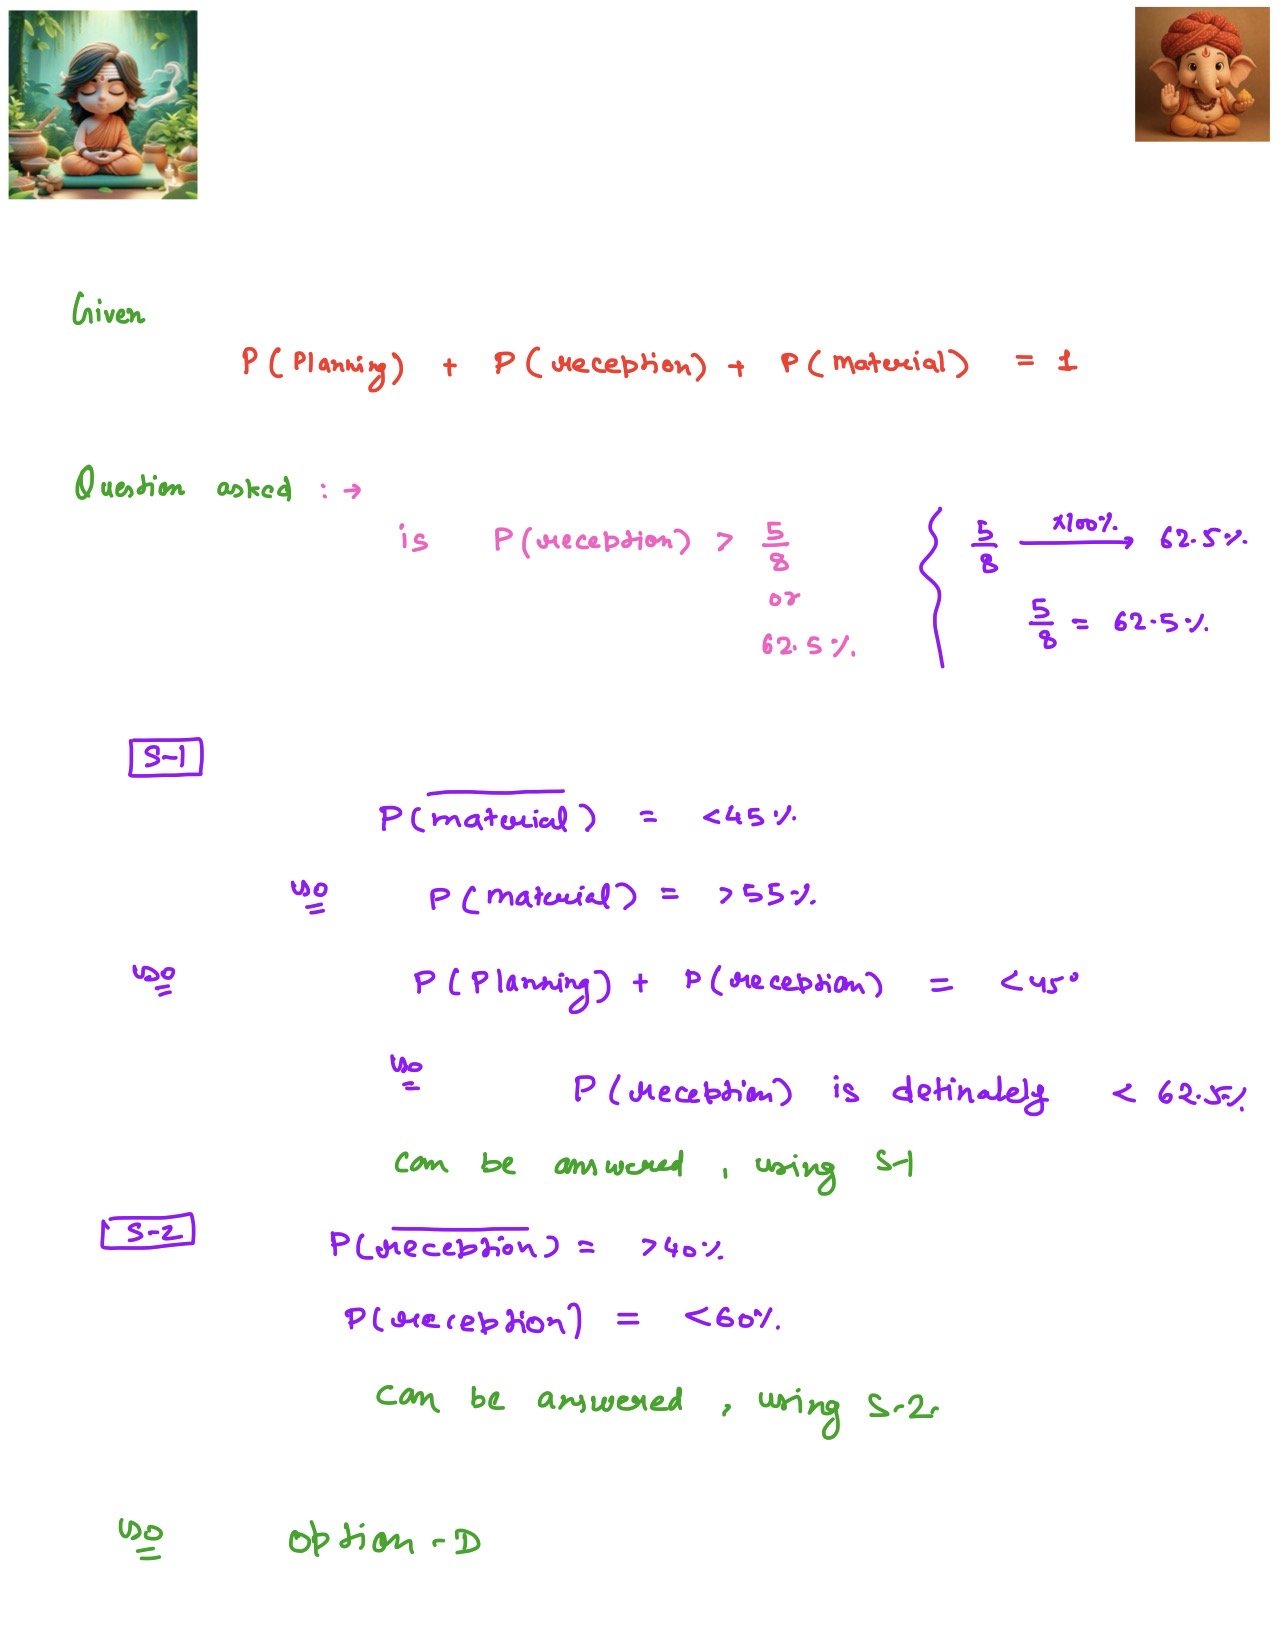 Given
P(Planning) + P(reception) + P(material) = 1
Question asked :→
is P(reception) > 5/8
or
62.5%.
5/8 ×100%. → 62.5%.
5/8 = 62.5%.
S-1
P(m̅a̅t̅e̅r̅i̅a̅l̅) = <45%.
so P(material) = >55%.
so P(Planning) + P(reception) = <45°
so P(reception) is detinately < 62.5%.
can be answered, using S-1
S-2 P(r̅e̅c̅e̅p̅t̅i̅o̅n̅) = >40%.
P(reception) = <60%.
can be answered, using S-2.
so option-D